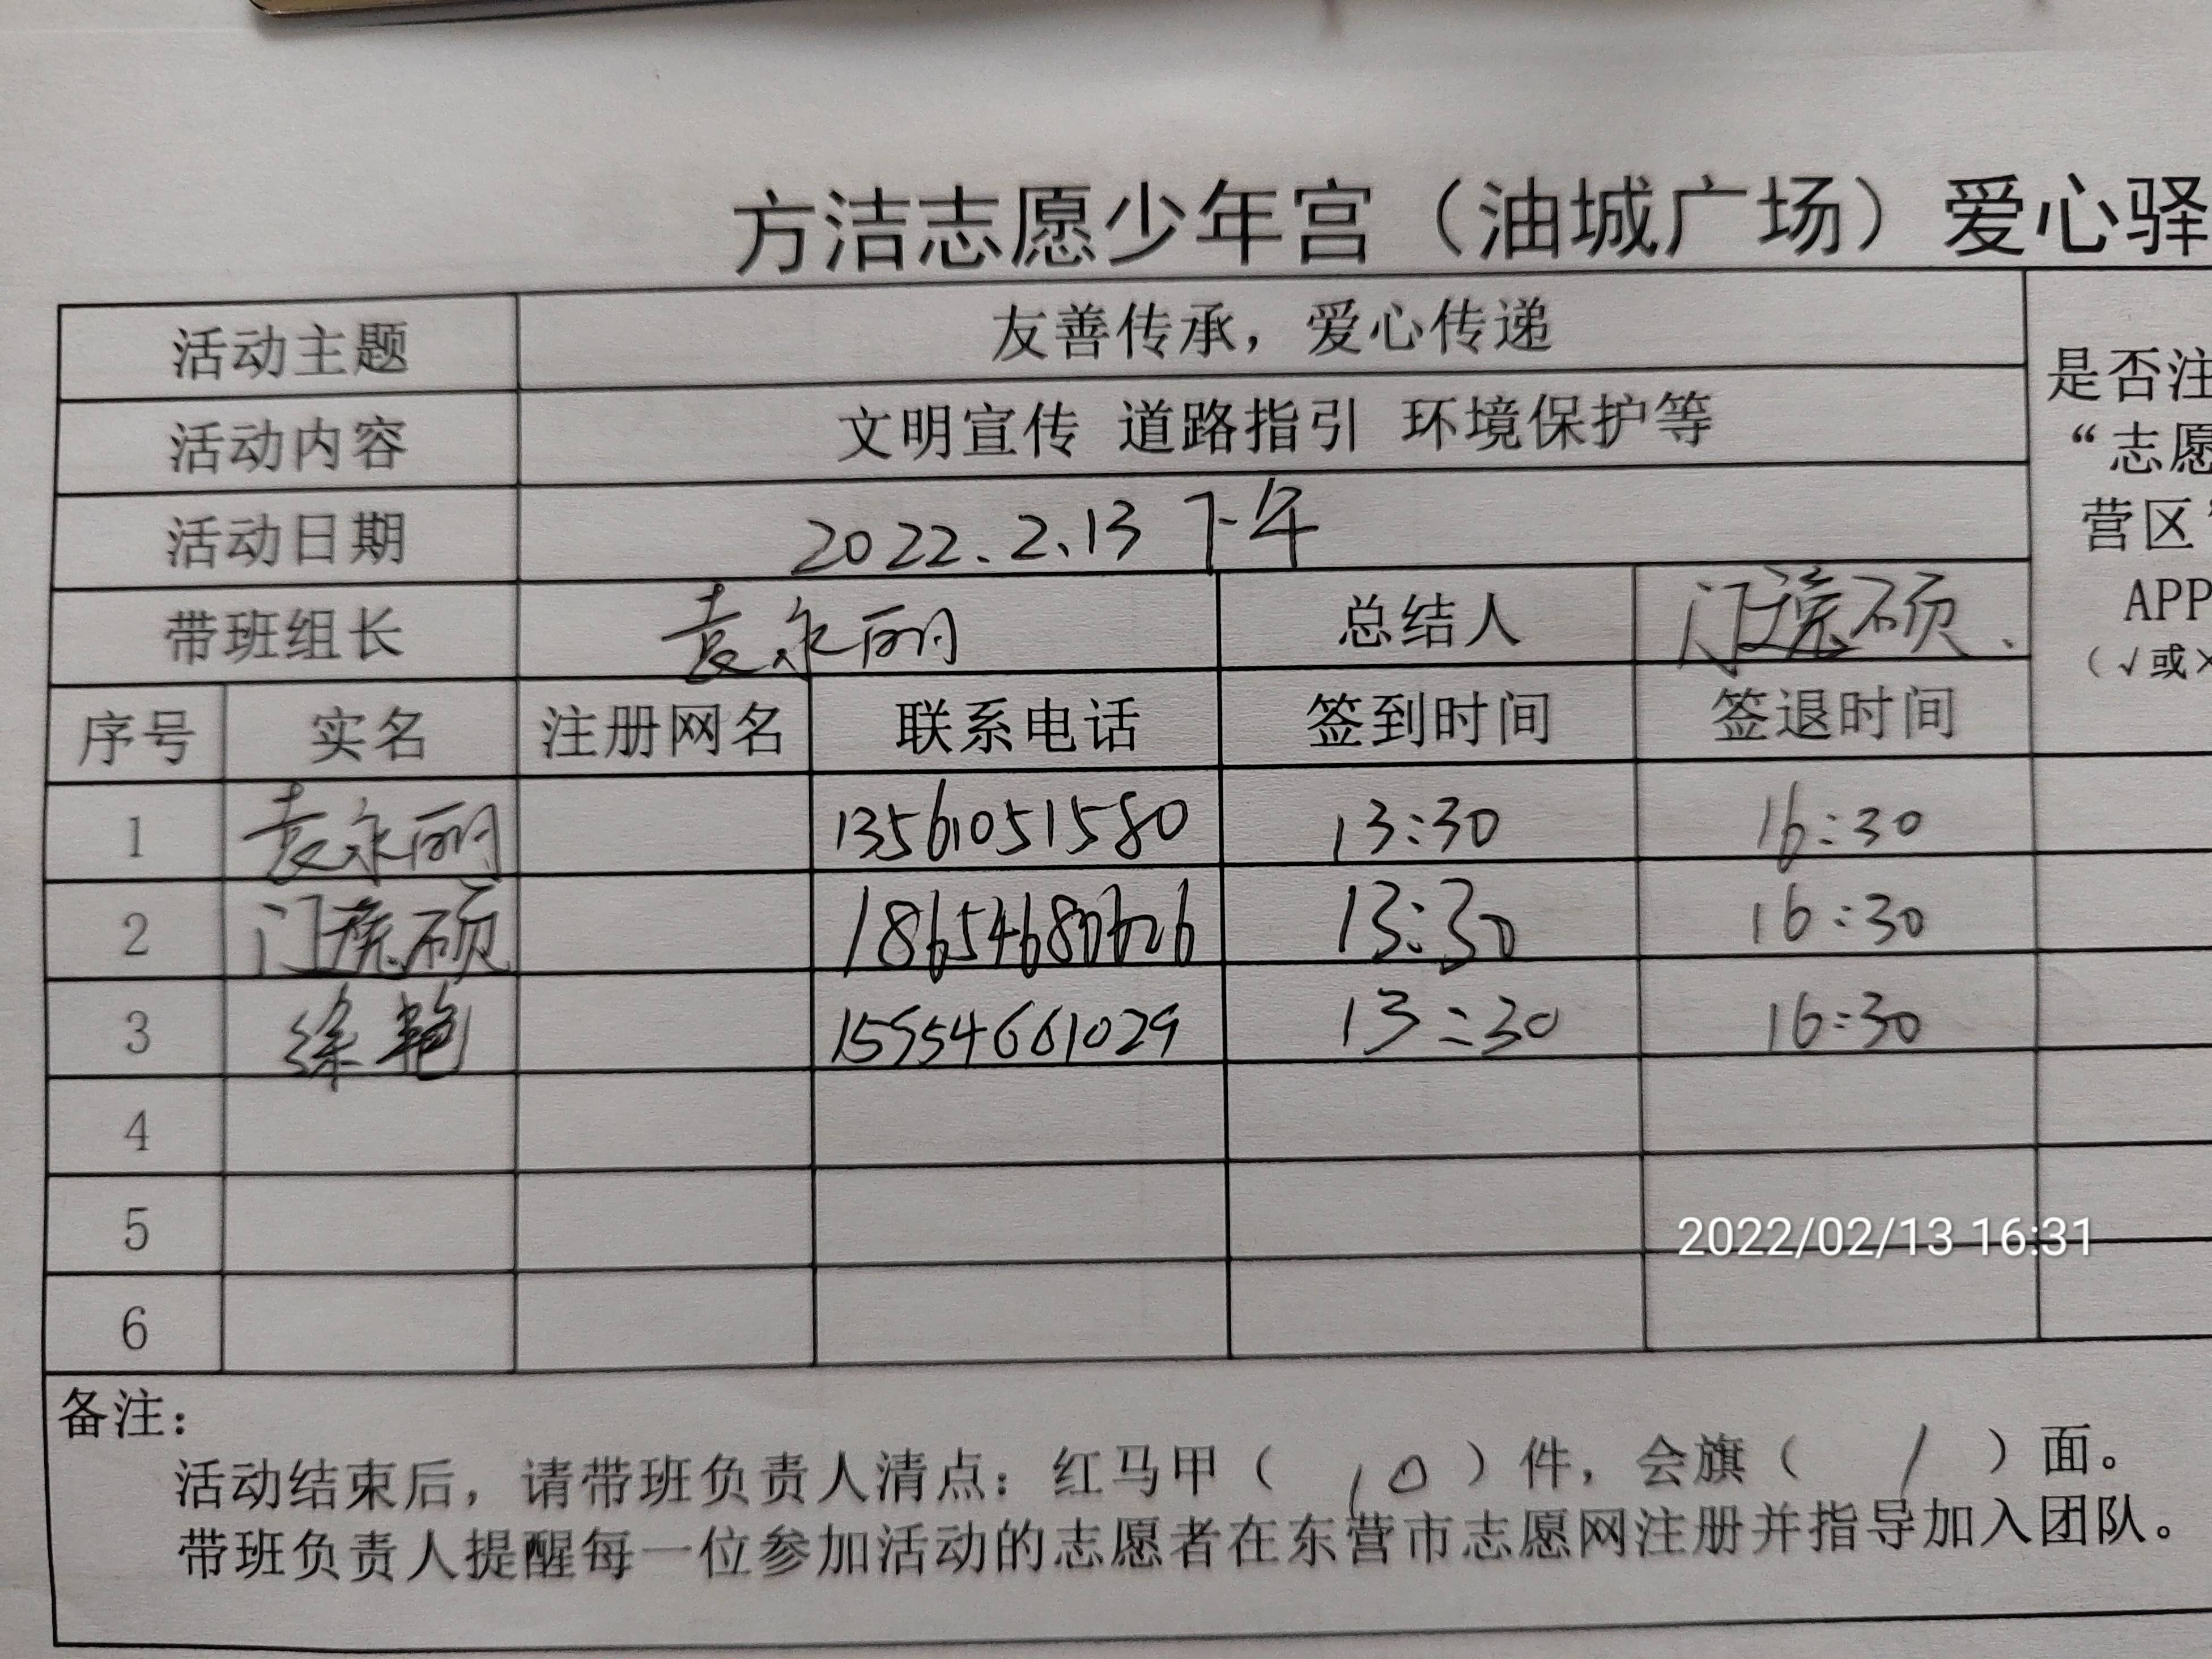 方洁志愿少年宫（油城广场）爱心驿
活动主题 友善传承，爱心传递
活动内容 文明宣传 道路指引 环境保护等
活动日期 2022.2.13 下午
是否注
“志愿
营区
APP
（√或×
带班组长 袁永丽 总结人
序号 实名 注册网名 联系电话 签到时间 签退时间
1 袁永丽 13561051580 13:30 16:30
2 18654680626 13:30 16:30
3 徐艳 15954661029 13:30 16:30
4
5
6
2022/02/13 16:31
备注：
活动结束后，请带班负责人清点：红马甲（ 10 ）件，会旗（ 1 ）面。
带班负责人提醒每一位参加活动的志愿者在东营市志愿网注册并指导加入团队。